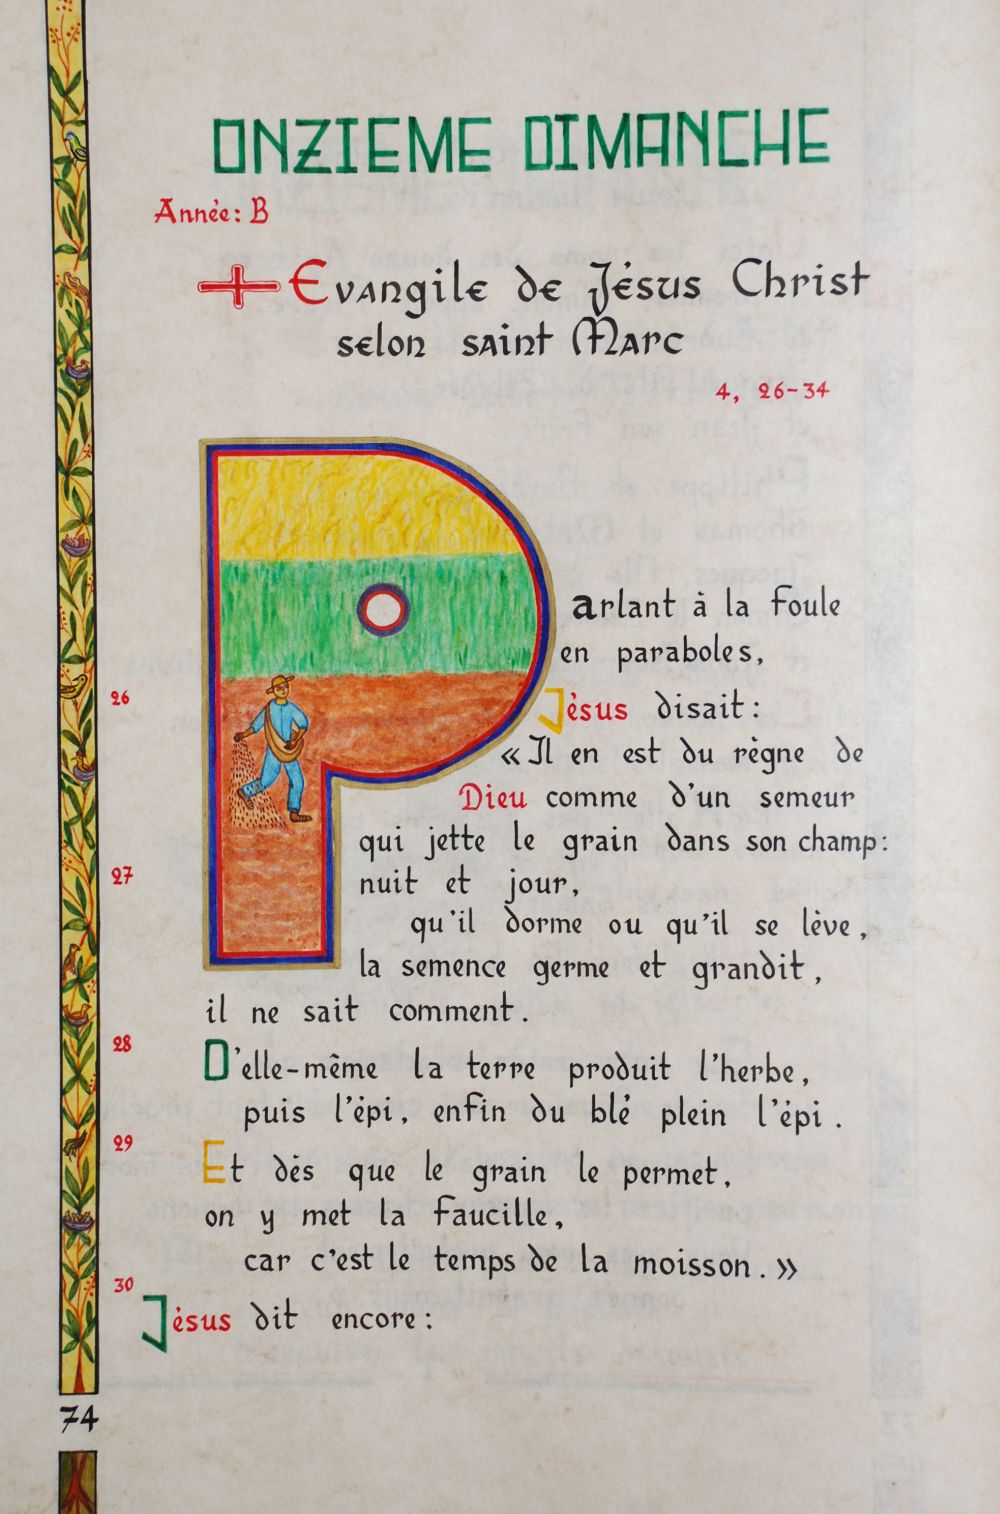 ONZIEME DIMANCHE
Année: B
Evangile de Jésus Christ
selon saint Marc
4, 26-34
Parlant à la foule
en paraboles,
26 Jésus disait:
« Il en est du règne de
Dieu comme d'un semeur
qui jette le grain dans son champ:
27 nuit et jour,
qu'il dorme ou qu'il se lève,
la semence germe et grandit,
il ne sait comment.
28 D'elle-même la terre produit l'herbe,
puis l'épi, enfin du blé plein l'épi.
29 Et dés que le grain le permet,
on y met la faucille,
car c'est le temps de la moisson. »
30 Jésus dit encore:
74